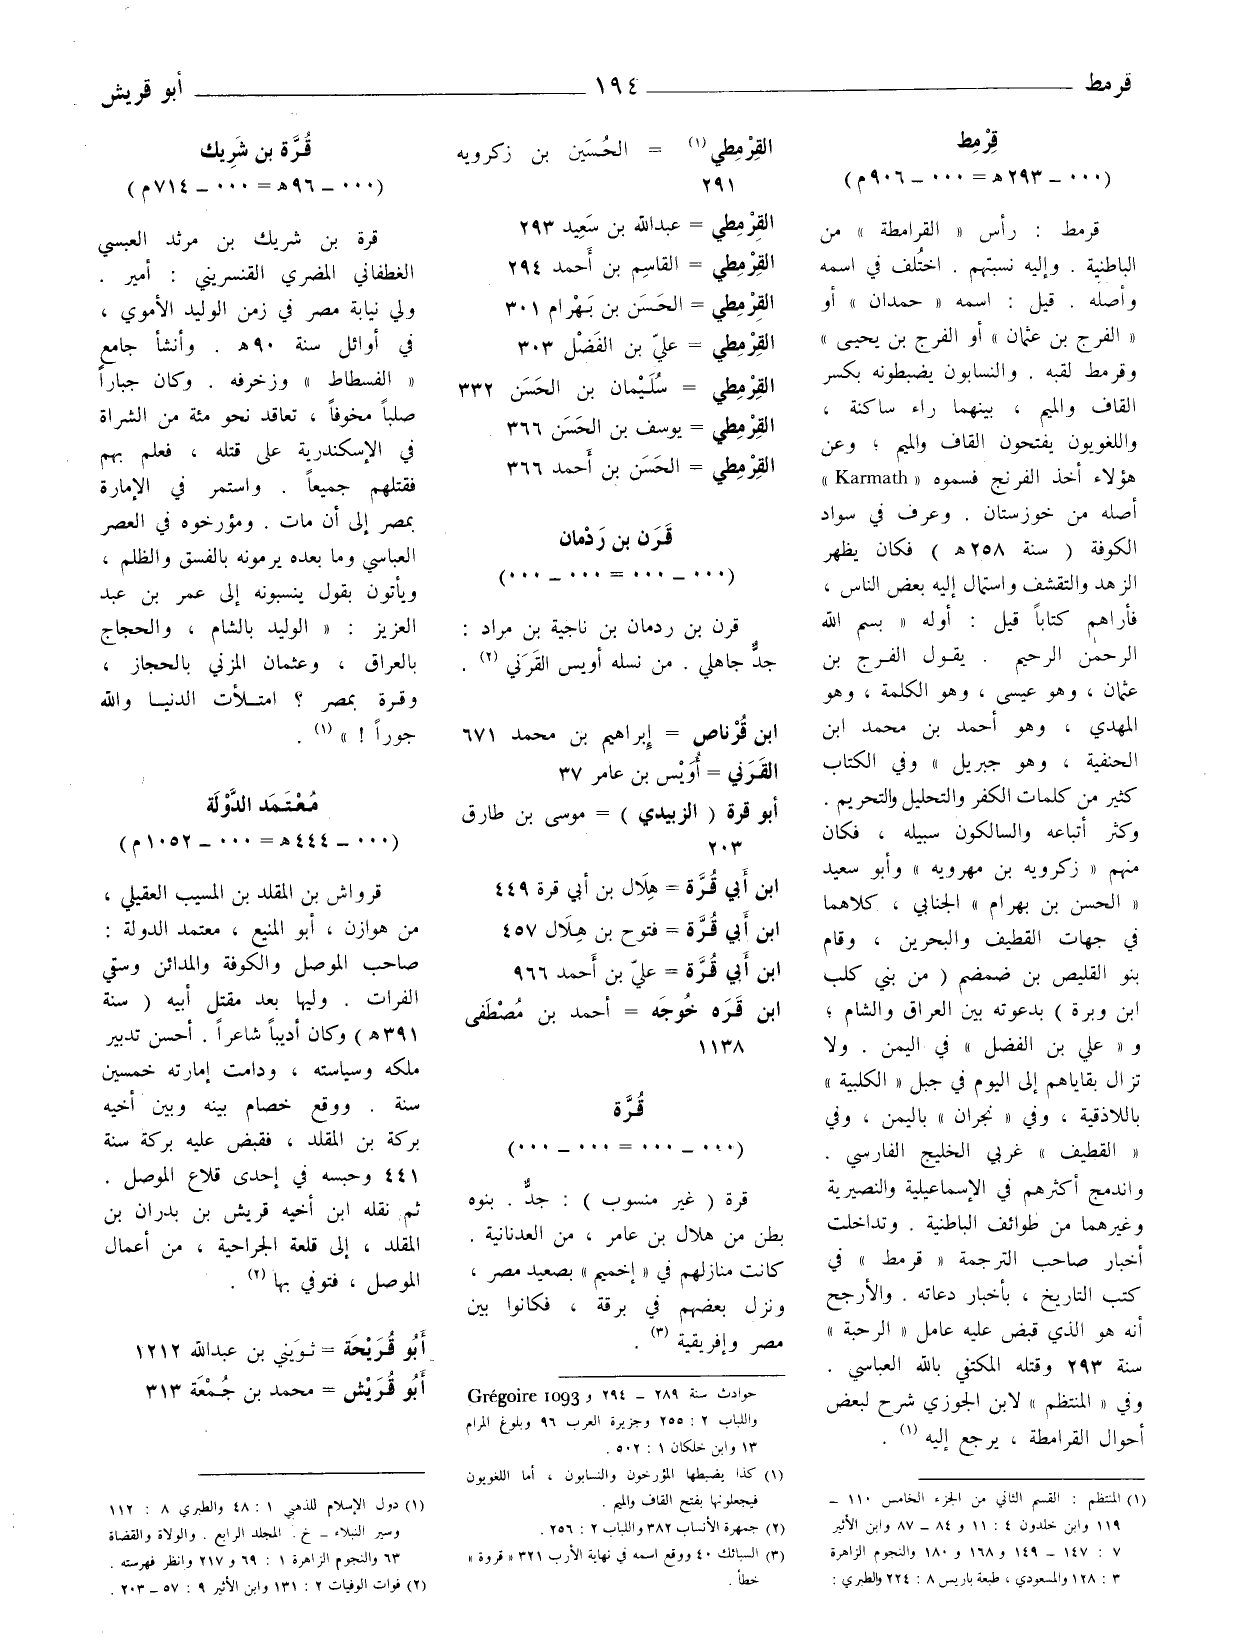 قرمط
١٩٤
أبو قريش
قِرْمِط
(٠٠٠ ـ ٢٩٣ هـ = ٠٠٠ ـ ٩٠٦ م)
قرمط : رأس « القرامطة » من
الباطنية . وإليه نسبتهم . اختُلف في اسمه
وأصله . قيل : اسمه « حمدان » أو
« الفرج بن عثمان » أو الفرج بن يحيى »
وقرمط لقبه . والنسابون يضبطونه بكسر
القاف والميم ، بينهما راء ساكنة ،
واللغويون يفتحون القاف والميم ؛ وعن
هؤلاء أخذ الفرنج فسموه « Karmath »
أصله من خوزستان . وعرف في سواد
الكوفة ( سنة ٢٥٨ هـ ) فكان يظهر
الزهد والتقشف واستمال إليه بعض الناس ،
فأراهم كتاباً قيل : أوله « بسم الله
الرحمن الرحيم . يقول الفرج بن
عثمان ، وهو عيسى ، وهو الكلمة ، وهو
المهدي ، وهو أحمد بن محمد ابن
الحنفية ، وهو جبريل » وفي الكتاب
كثير من كلمات الكفر والتحليل والتحريم .
وكثر أتباعه والسالكون سبيله ، فكان
منهم « زكرويه بن مهرويه » وأبو سعيد
« الحسن بن بهرام » الجنابي ، كلاهما
في جهات القطيف والبحرين ، وقام
بنو القليص بن ضمضم ( من بني كلب
ابن وبرة ) بدعوته بين العراق والشام ؛
و « علي بن الفضل » في اليمن . ولا
تزال بقاياهم إلى اليوم في جبل « الكلبية »
باللاذقية ، وفي « نجران » باليمن ، وفي
« القطيف » غربي الخليج الفارسي .
واندمج أكثرهم في الإسماعيلية والنصيرية
وغيرهما من طوائف الباطنية . وتداخلت
أخبار صاحب الترجمة « قرمط » في
كتب التاريخ ، بأخبار دعاته . والأرجح
أنه هو الذي قبض عليه عامل « الرحبة »
سنة ٢٩٣ وقتله المكتفي بالله العباسي .
وفي « المنتظم » لابن الجوزي شرح لبعض
أحوال القرامطة ، يرجع إليه (١) .
(١) المنتظم : القسم الثاني من الجزء الخامس ١١٠ ـ
١١٩ وابن خلدون ٤ : ١١ و ٨٤ ـ ٨٧ وابن الأثير
٧ : ١٤٧ ـ ١٤٩ و ١٦٨ و ١٨٠ والنجوم الزاهرة
٣ : ١٢٨ والمسعودي ، طبعة باريس ٨ : ٢٢٤ والطبري :
القِرْمِطي (١) = الحُسَين بن زكرويه
٢٩١
القِرْمِطي = عبدالله بن سَعِيد ٢٩٣
القِرْمِطي = القاسِم بن أَحمد ٢٩٤
القِرْمِطي = الحَسَن بن بَهْرام ٣٠١
القِرْمِطي = عليّ بن الفَضْل ٣٠٣
القِرْمِطي = سُلَيْمان بن الحَسَن ٣٣٢
القِرْمِطي = يوسف بن الحَسَن ٣٦٦
القِرْمِطي = الحَسَن بن أَحمد ٣٦٦
قَرَن بن رَدْمان
(٠٠٠ ـ ٠٠٠ = ٠٠٠ ـ ٠٠٠)
قرن بن ردمان بن ناجية بن مراد :
جدٌّ جاهلي . من نسله أويس القَرَني (٢) .
ابن قُرْناص = إبراهيم بن محمد ٦٧١
القَرَني = أُوَيْس بن عامر ٣٧
أبو قرة ( الزبيدي ) = موسى بن طارق
٢٠٣
ابن أَبي قُرَّة = هِلَال بن أبي قرة ٤٤٩
ابن أَبي قُرَّة = فتوح بن هِلَال ٤٥٧
ابن أَبي قُرَّة = عليّ بن أَحمد ٩٦٦
ابن قَرَه خُوجَه = أحمد بن مُصْطَفى
١١٣٨
قُرَّة
(٠٠٠ ـ ٠٠٠ = ٠٠٠ ـ ٠٠٠)
قرة ( غير منسوب ) : جدٌّ . بنوه
بطن من هلال بن عامر ، من العدنانية .
كانت منازلهم في « إخميم » بصعيد مصر ،
ونزل بعضهم في برقة ، فكانوا بين
مصر وإفريقية (٣) .
حوادث سنة ٢٨٩ ـ ٢٩٤ و Grégoire 1093
واللباب ٢ : ٢٥٥ وجزيرة العرب ٩٦ وبلوغ المرام
١٣ وابن خلكان ١ : ٥٠٢ .
(١) كذا يضبطها المؤرخون والنسابون ، أما اللغويون
فيجعلونها بفتح القاف والميم .
(٢) جمهرة الأنساب ٣٨٢ واللباب ٢ : ٢٥٦ .
(٣) السبائك ٤٠ ووقع اسمه في نهاية الأرب ٣٢١ « قروة »
خطأ .
قُرَّة بن شَرِيك
(٠٠٠ ـ ٩٦ هـ = ٠٠٠ ـ ٧١٤ م)
قرة بن شريك بن مرثد العبسي
الغطفاني المضري القنسريني : أمير .
ولي نيابة مصر في زمن الوليد الأموي ،
في أوائل سنة ٩٠ هـ . وأنشأ جامع
« الفسطاط » وزخرفه . وكان جباراً
صلباً مخوفاً ، تعاقد نحو مئة من الشراة
في الإسكندرية على قتله ، فعلم بهم
فقتلهم جميعاً . واستمر في الإمارة
بمصر إلى أن مات . ومؤرخوه في العصر
العباسي وما بعده يرمونه بالفسق والظلم ،
ويأتون بقول ينسبونه إلى عمر بن عبد
العزيز : « الوليد بالشام ، والحجاج
بالعراق ، وعثمان المزني بالحجاز ،
وقرة بمصر ؟ امتلأت الدنيا والله
جوراً ! » (١) .
مُعْتَمَد الدَّوْلَة
(٠٠٠ ـ ٤٤٤ هـ = ٠٠٠ ـ ١٠٥٢ م)
قرواش بن المقلد بن المسيب العقيلي ،
من هوازن ، أبو المنيع ، معتمد الدولة :
صاحب الموصل والكوفة والمدائن وسقي
الفرات . وليها بعد مقتل أبيه ( سنة
٣٩١ هـ ) وكان أديباً شاعراً . أحسن تدبير
ملكه وسياسته ، ودامت إمارته خمسين
سنة . ووقع خصام بينه وبين أخيه
بركة بن المقلد ، فقبض عليه بركة سنة
٤٤١ وحبسه في إحدى قلاع الموصل .
ثم نقله ابن أخيه قريش بن بدران بن
المقلد ، إلى قلعة الجراحية ، من أعمال
الموصل ، فتوفي بها (٢) .
أَبُو قُرَيْحَة = ثوَيَني بن عبدالله ١٢١٢
أَبُو قُرَيْش = محمد بن جُمْعَة ٣١٣
(١) دول الإسلام للذهبي ١ : ٤٨ والطبري ٨ : ١١٢
وسير النبلاء ـ خ . المجلد الرابع . والولاة والقضاة
٦٣ والنجوم الزاهرة ١ : ٦٩ و ٢١٧ وانظر فهرسته .
(٢) فوات الوفيات ٢ : ١٣١ وابن الأثير ٩ : ٥٧ ـ ٢٠٣ .